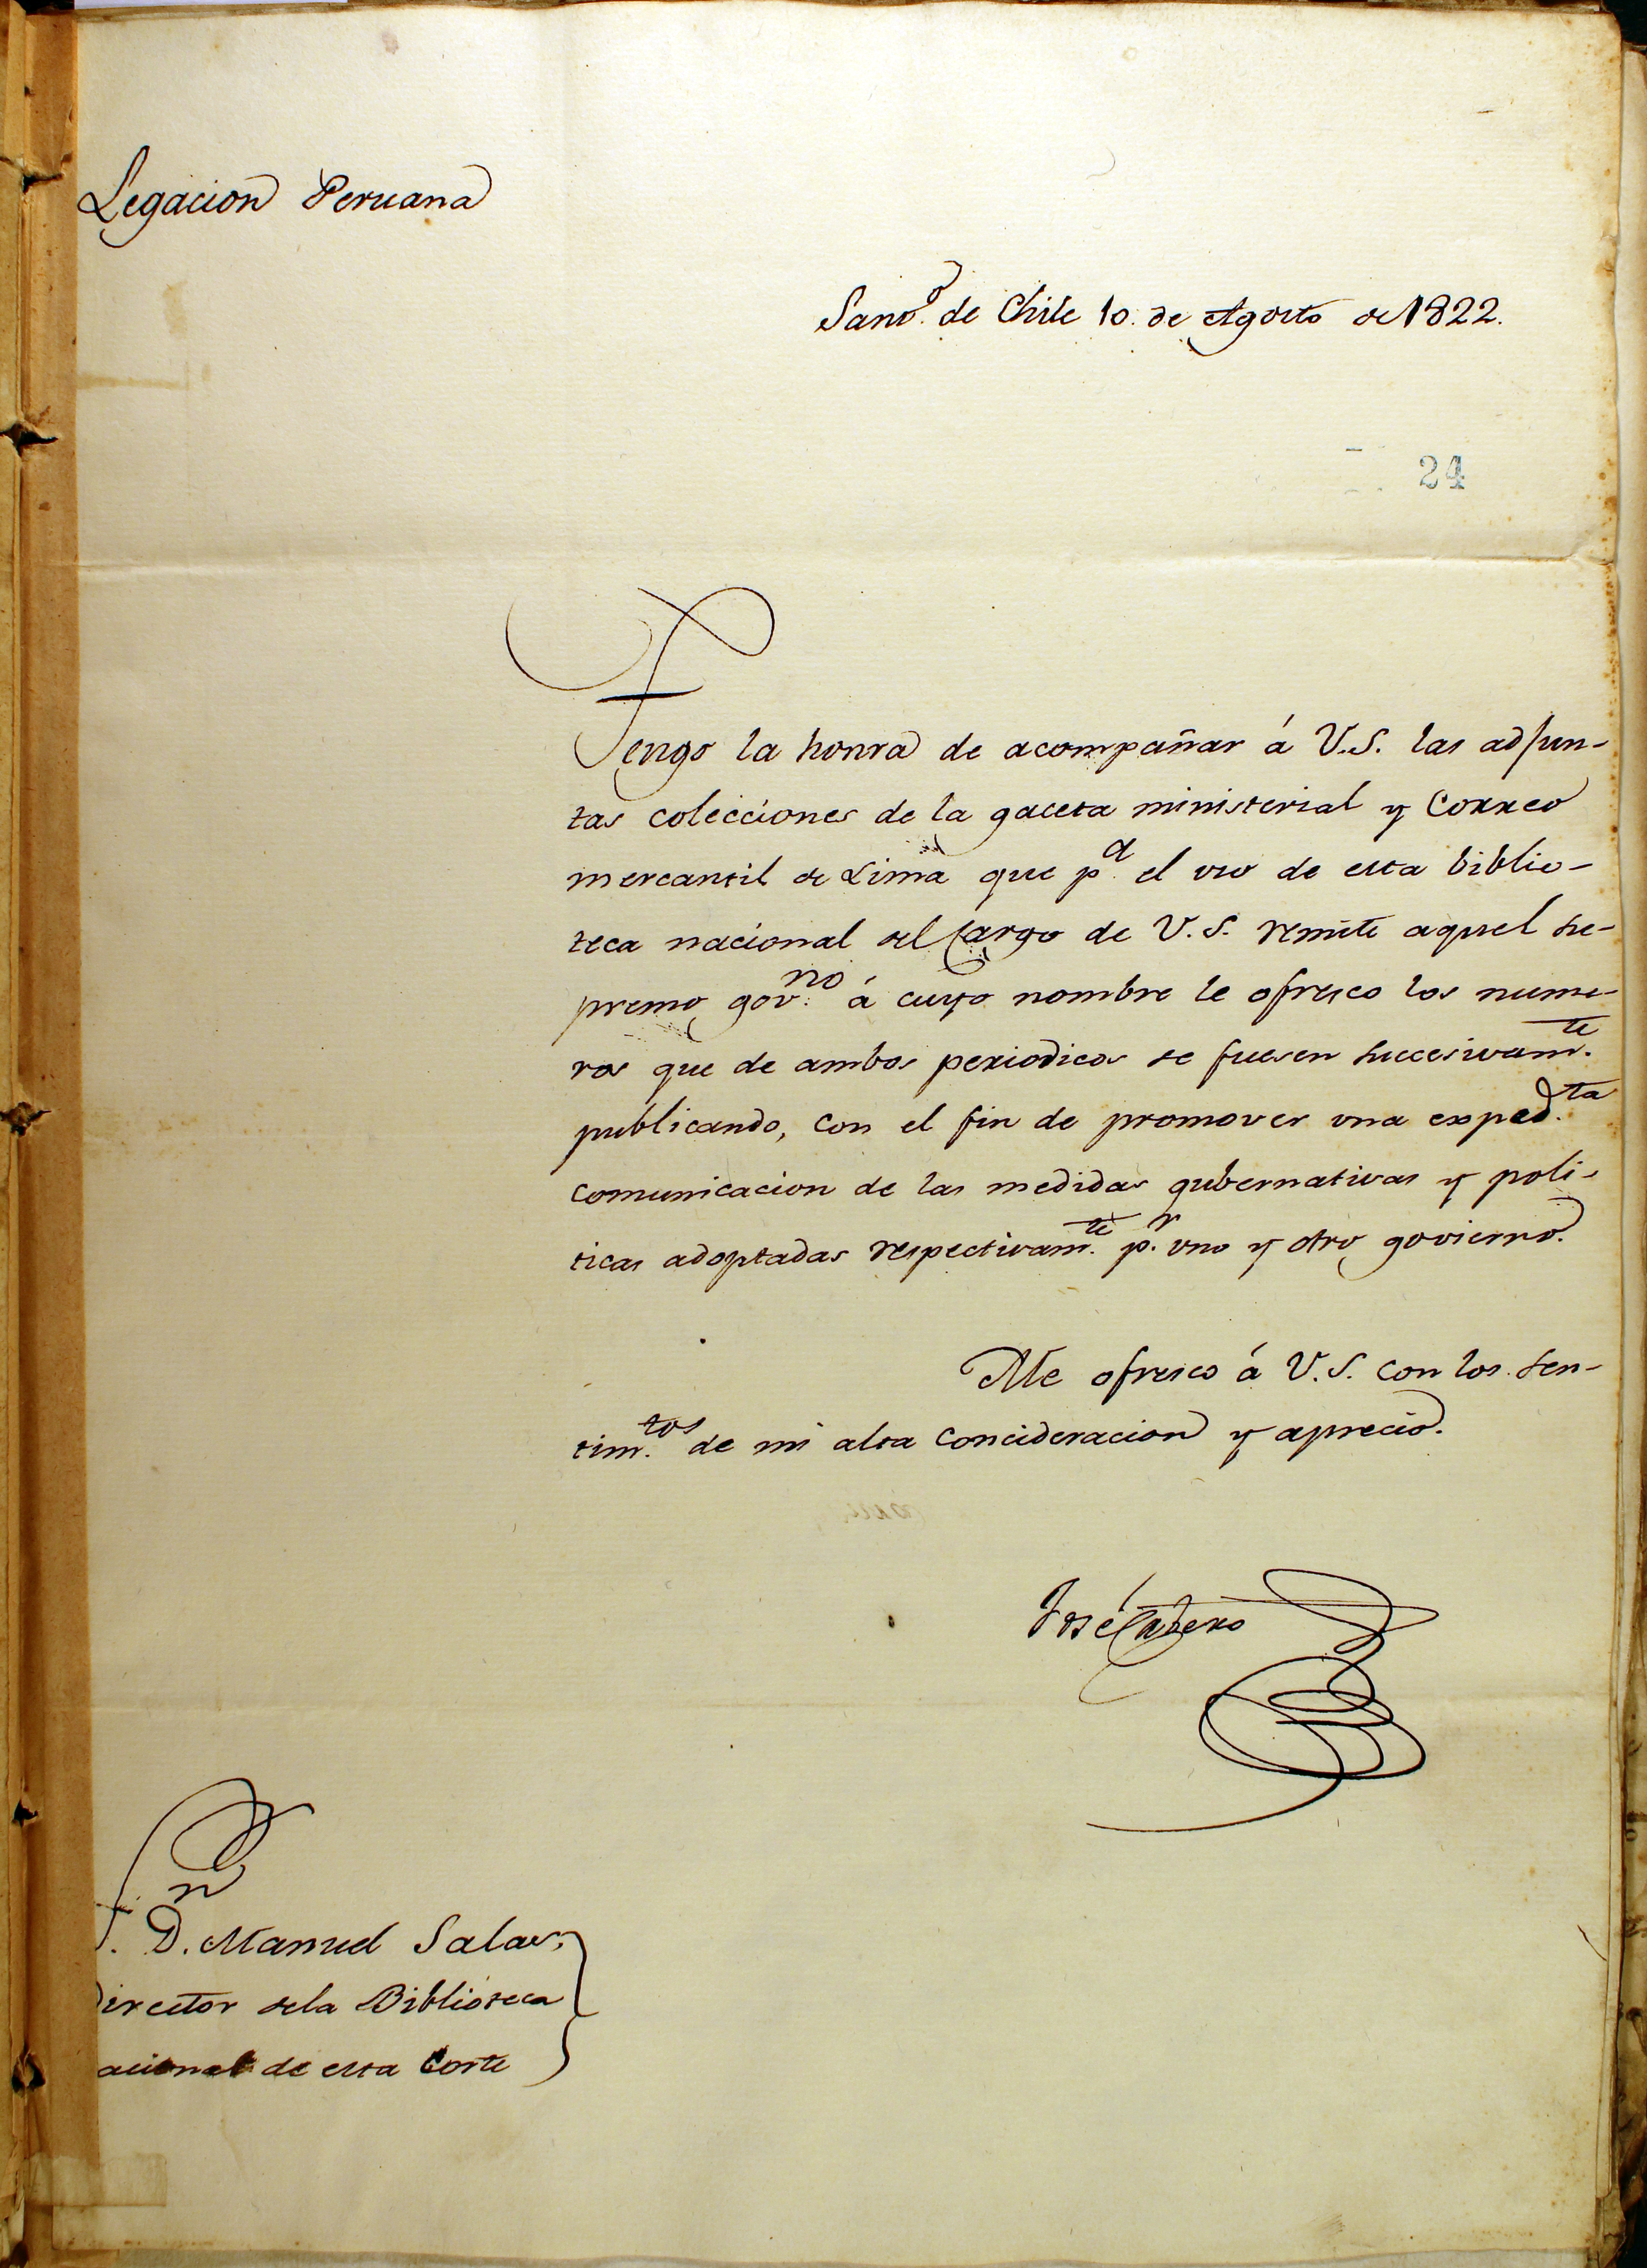 Legacion Peruana
Santo. de Chile 10. de Agosto de 1822.
24
Tengo la honra de acompañar á V.S. las adjun-
tas colecciones de la gaceta ministerial y Correo
mercantil de Lima que pa. el uso de esta biblio-
teca nacional del cargo de V.S. remite aquel su-
premo govno. á cuyo nombre le ofresco los nume-
ros que de ambos periodicos se fuesen succesivamte.
publicando, con el fin de promover una expedta.
comunicacion de las medidas gubernativas y poli-
ticas adoptadas respectivamte. pr. uno y otro govierno.
Me ofresco á V.S. con los sen-
timtos. de mi alta concideracion y aprecio.
José Cavero
D. Manuel Salas,
Director dela Biblioteca
acional de esta Corte